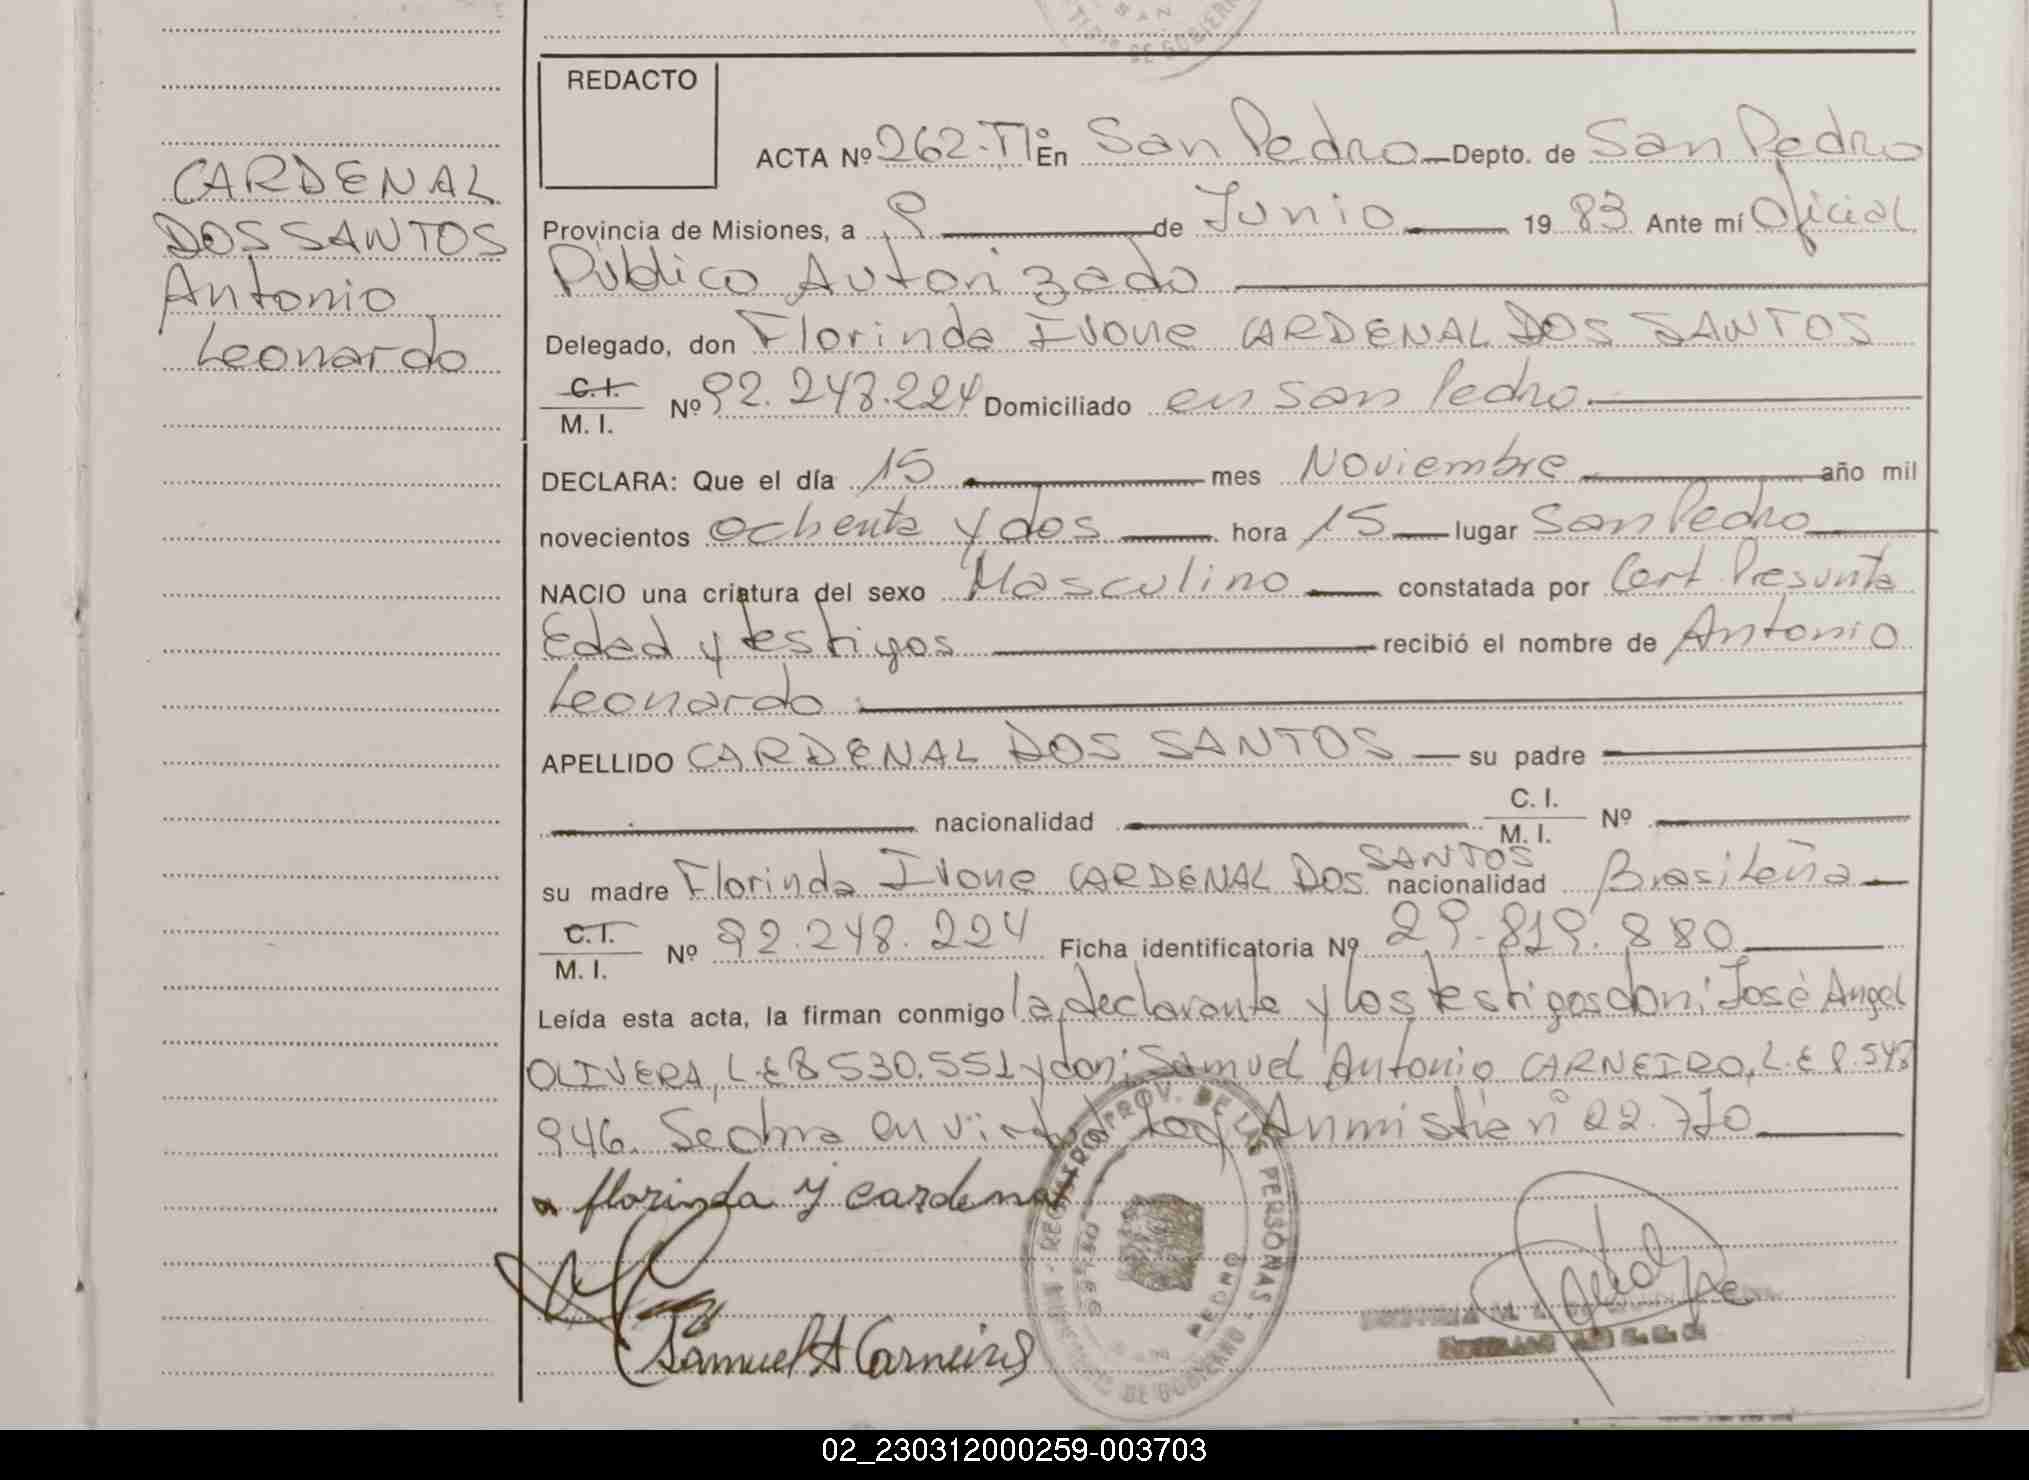 REDACTO
CARDENAL
DOS SANTOS
Antonio
Leonardo
ACTA Nº 262-TI En San Pedro Depto. de San Pedro
Provincia de Misiones, a 9 de Junio 1983 Ante mí Oficial
Público Autorizado
Delegado, don Florinda Ivone CARDENAL DOS SANTOS
C.I. M.I. Nº 92.248.224 Domiciliado en San Pedro
DECLARA: Que el día 15 mes Noviembre año mil
novecientos ochenta y dos hora 15 lugar San Pedro
NACIO una criatura del sexo Masculino constatada por Cert. Presunta
Edad y testigos recibió el nombre de Antonio
Leonardo
APELLIDO CARDENAL DOS SANTOS su padre
nacionalidad C.I. M.I. Nº
su madre Florinda Ivone CARDENAL DOS SANTOS nacionalidad Brasileña
C.I. M.I. Nº 92.248.224 Ficha identificatoria Nº 29.819.880
Leída esta acta, la firman conmigo la declarante y los testigos don: José Angel
OLIVERA, L.E 8530.551 y don: Samuel Antonio CARNEIRO, L.E 8.548
946. Se obra en virtud Ley Anmistia nº 22.770
florinda y cardenal
Samuel A Carneiro
REGISTRO PROV. DE LAS PERSONAS
SAN PEDRO
DE GOBIERNO
02_230312000259-003703